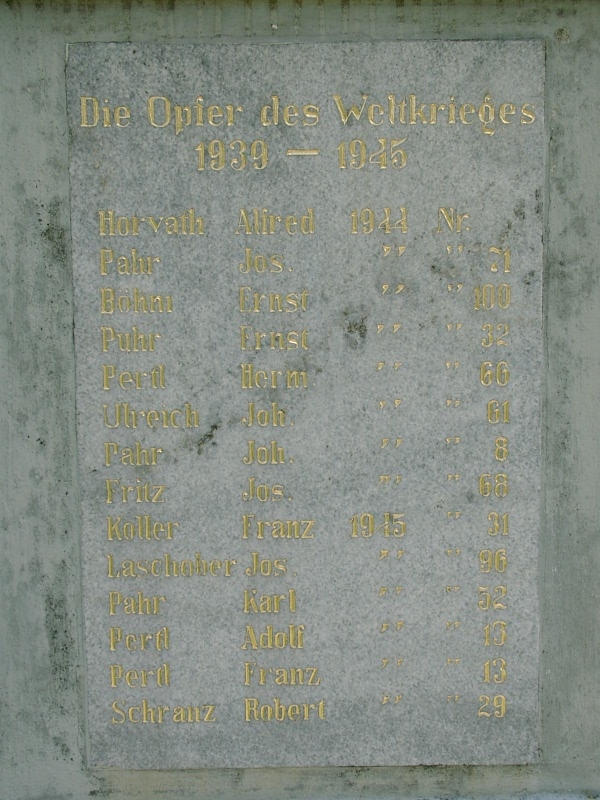 Die Opfer des Weltkrieges
1939 — 1945
Horvath Alfred 1944 Nr.
Pahr Jos. " " 71
Böhm Ernst " " 100
Puhr Ernst " " 32
Pertl Herm. " " 66
Ulreich Joh. " " 61
Pahr Joh. " " 8
Fritz Jos. " " 68
Koller Franz 1945 " 31
Laschober Jos. " " 96
Pahr Karl " " 52
Pertl Adolf " " 13
Pertl Franz " " 13
Schranz Robert " " 29